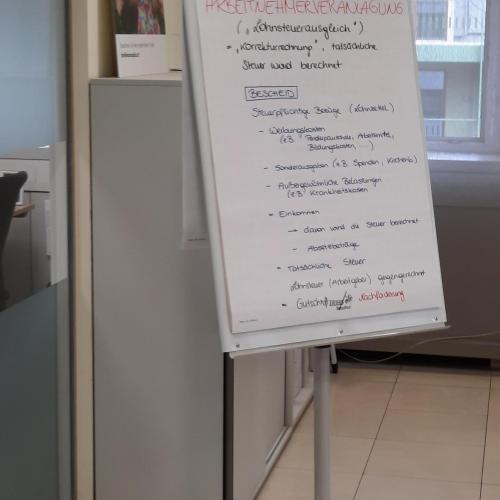 ARBEITNEHMERVERANLAGUNG
(„Lohnsteuerausgleich")
= „Korrekturrechnung", tatsächliche
Steuer wird berechnet
BESCHEID
Steuerpflichtige Bezüge (Lohnzettel)
- Werbungskosten
(z.B. Pendlerpauschale, Arbeitsmittel,
Bildungskosten, ....)
- Sonderausgaben (z.B. Spenden, Kirchenb.)
- Außergewöhnliche Belastungen
(z.B. Krankheitskosten
= Einkommen
→ davon wird die Steuer berechnet
- Absetzbeträge
= Tatsächliche Steuer
Lohnsteuer (Arbeitgeber) gegengerechnet
= Gutschrift Nachforderung